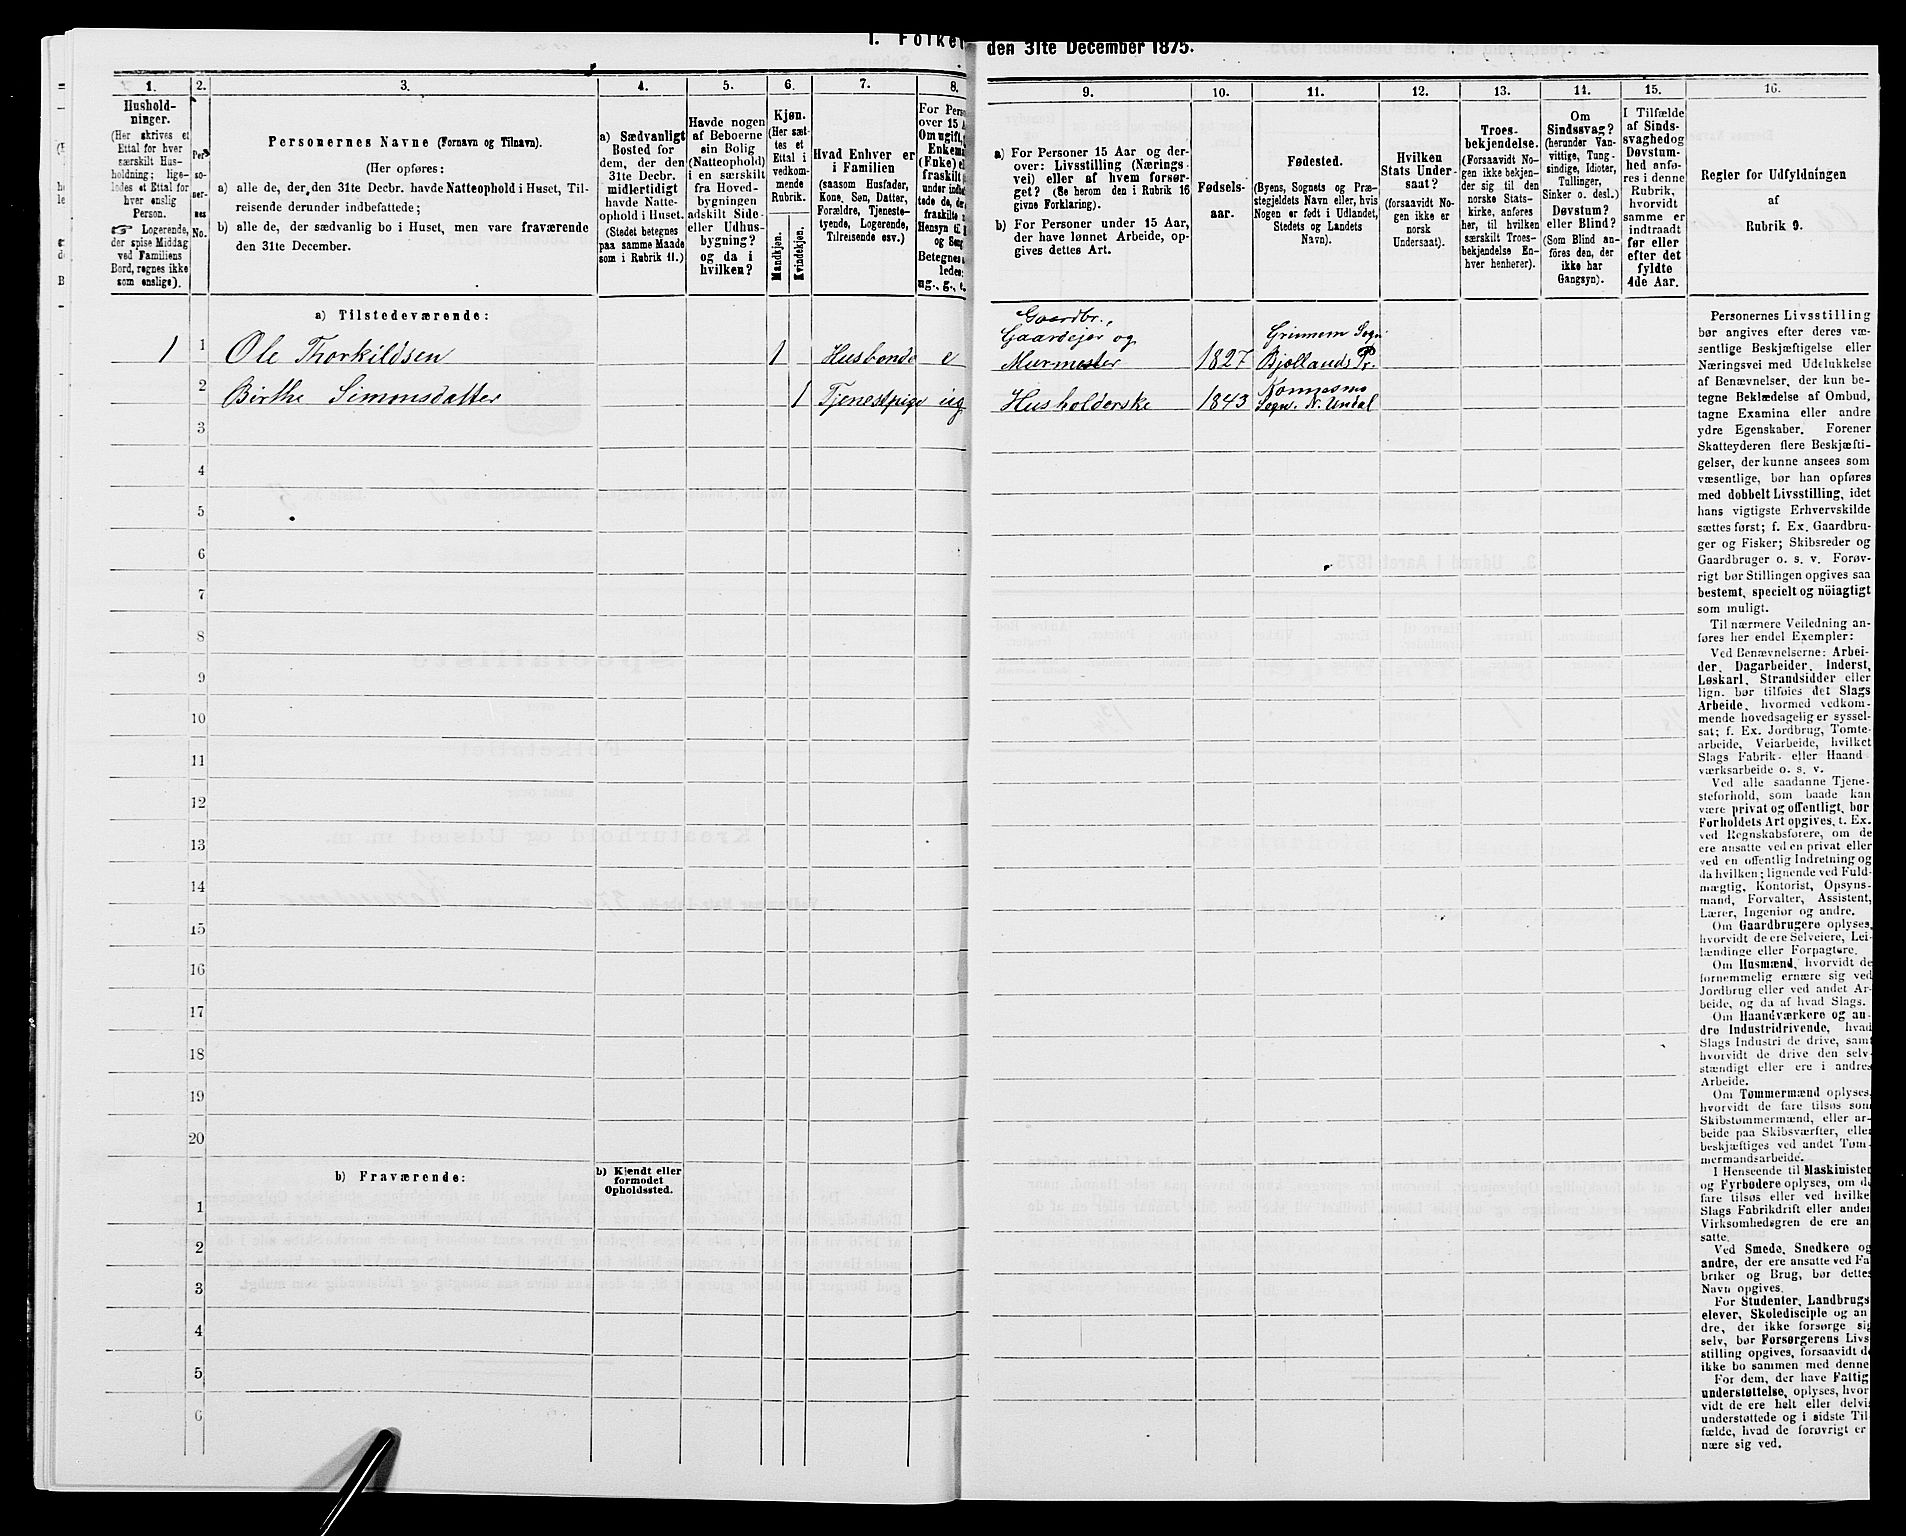 I. Folket
den 31te December 1875.
1.
Hushold-
ninger.
(Her skrives et
Ettal for hver
særskilt Hus-
holdning; lige-
ledes et Ettal for
hver enslig
Person.
Logerende,
der spise Middag
ved Familiens
Bord, regnes ikke
som enslige).
2.
Per-
so-
ner-
nes
No.
3.
Personernes Navne (Fornavn og Tilnavn).
(Her opføres:
a) alle de, der den 31te Decbr. havde Natteophold i Huset, Til-
reisende derunder indbefattede;
b) alle de, der sædvanlig bo i Huset, men vare fraværende
den 31te December.
4.
a) Sædvanligt
Bosted for
dem, der den
31te Decbr.
midlertidigt
havde Natte-
ophold i Huset.
(Stedet betegnes
paa samme Maade
som i Rubrik 11.)
5.
Havde nogen
af Beboerne
sin Bolig
(Natteophold)
i en særskilt
fra Hoved-
bygningen
adskilt Side-
eller Udhus-
bygning?
og da i
hvilken?
6.
Kjøn.
(Her sæt-
tes et
Ettal i
vedkom-
mende
Rubrik.
Mandkjøn.
Kvindekjøn.
7.
Hvad Enhver er
i Familien
(saasom Husfader,
Kone, Søn, Datter,
Forældre, Tjeneste-
tyende, Logerende,
Tilreisende osv.)
8.
For Perso
over 15 A
Om ugift,
Enkema
(Enke) el
fraskilt
under indbe
tede de, der
fraskilte
Hensyn til B
og Seng
Betegnes
ledes:
ug., g., e.
9.
a) For Personer 15 Aar og der-
over: Livsstilling (Nærings-
vei) eller af hvem forsør-
get? (Se herom den i Rubrik 16
givne Forklaring).
b) For Personer under 15 Aar,
der have lønnet Arbeide, op-
gives dettes Art.
10.
Fødsels-
aar.
11.
Fødested.
(Byens, Sognets og Præ-
stegjeldets Navn eller, hvis
Nogen er født i Udlandet,
Stedets og Landets
Navn).
12.
Hvilken
Stats Under-
saat?
(forsaavidt No-
gen ikke er
norsk
Undersaat).
13.
Troes-
bekjendelse.
(Forsaavidt No-
gen ikke bekjen-
der sig til den
norske Stats-
kirke, anføres
her, til hvilken
særskilt Troes-
bekjendelse En-
hver henhører).
14.
Om
Sindssvag?
(herunder Van-
vittige, Tung-
sindige, Idioter,
Tullinger,
Sinker o. desl.)
Døvstum?
eller Blind?
(Som Blind an-
føres den, der
ikke har
Gangsyn).
15.
I Tilfælde
af Sinds-
svaghed og
Døvstum-
hed anfø-
res i denne
Rubrik,
hvorvidt
samme er
indtraadt
før eller
efter det
fyldte
4de Aar.
16.
Regler for Udfyldningen
af
Rubrik 9.
a) Tilstedeværende:
1 1 Ole Thorkildsen 1 Husbonde e Gaardbr., Gaardejer og Murmester 1827 Grinnem Sogn Bjellands Pr.
2 Birthe Simonsdatter 1 Tjenestpige ug Husholderske 1843 Konnesmo Sogn. N. Undal
3
4
5
6
7
8
9
10
11
12
13
14
15
16
17
18
19
20
b) Fraværende:
b) Kjendt eller
formodet
Opholdssted.
1
2
3
4
5
6
Personernes Livsstilling
bør angives efter deres væ-
sentlige Beskjæftigelse eller
Næringsvei med Udelukkelse
af Benævnelser, der kun be-
tegne Beklædelse af Ombud,
tagne Examina eller andre
ydre Egenskaber. Forener
Skatteyderen flere Beskjæfti-
gelser, der kunne ansees som
væsentlige, bør han opføres
med dobbelt Livsstilling, idet
hans vigtigste Erhvervskilde
sættes først; f. Ex. Gaardbru-
ger og Fisker; Skibsreder og
Gaardbruger o. s. v. Forøv-
rigt bør Stillingen opgives saa
bestemt, specielt og nöiagtigt
som muligt.
Til nærmere Veiledning an-
føres her endel Exempler:
Ved Benævnelserne: Arbei-
der, Dagarbeider, Inderst,
Løskarl, Strandsidder eller
lign. bør tilføies det Slags
Arbeide, hvormed vedkom-
mende hovedsagelig er syssel-
sat; f. Ex. Jordbrug, Tomte-
arbeide, Veiarbeide, hvilket
Slags Fabrik- eller Haand-
værksarbeide o. s. v.
Ved alle saadanne Tjene-
steforhold, som baade kan
være privat og offentligt, bør
Forholdets Art opgives, t. Ex.
ved Regnskabsførere, om de
ere ansatte ved en privat eller
ved en offentlig Indretning og
da hvilken; lignende ved Fuld-
mægtig, Kontorist, Opsyns-
mand, Forvalter, Assistent,
Lærer, Ingeniør og andre.
Om Gaardbrugere oplyses,
hvorvidt de ere Selveiere, Lei-
lændinge eller Forpagtere.
Om Husmænd, hvorvidt de
fornemmelig ernære sig ved
Jordbrug eller ved andet Ar-
beide, og da af hvad Slags.
Om Haandværkere og an-
dre Industridrivende, hvad
Slags Industri de drive, samt
hvorvidt de drive den selv-
stændigt eller ere i andres
Arbeide.
Om Tømmermænd oplyses,
hvorvidt de fare tilsøs som
Skibstømmermænd, eller ar-
beide paa Skibsværfter, eller
beskjæftiges ved andet Tøm-
mermandsarbeide.
I Henseende til Maskinister
og Fyrbødere oplyses, om de
fare tilsøs eller ved hvilket
Slags Fabrikdrift eller anden
Virksomhedsgren de ere an-
satte.
Ved Smede, Snedkere og
andre, der ere ansatte ved Fa-
briker og Brug, bør dettes
Navn opgives.
For Studenter, Landbrugs-
elever, Skoledisciple og an-
dre, der ikke forsørge sig
selv, bør Forsørgerens Livs-
stilling opgives, forsaavidt de
ikke bo sammen med denne.
For dem, der have Fattig-
understøttelse, oplyses, hvor-
vidt de ere helt eller delvis
understøttede og i sidste Til-
fælde, hvad de forøvrigt er-
nære sig ved.